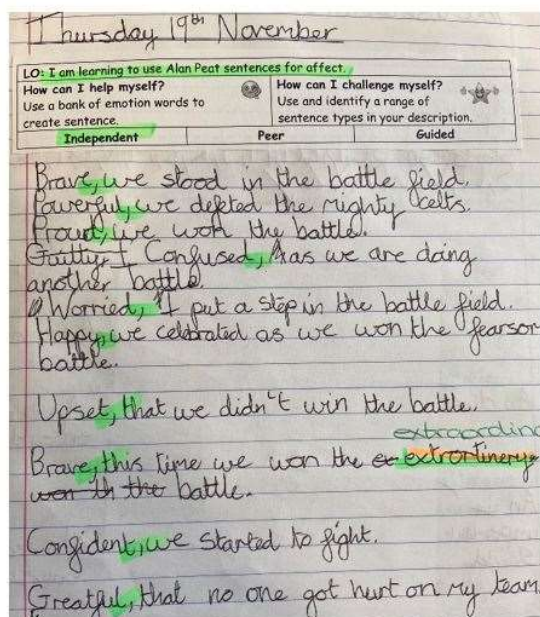 Thursday 19th November
LO: I am learning to use Alan Peat sentences for affect.
How can I help myself?
Use a bank of emotion words to
create sentence.
How can I challenge myself?
Use and identify a range of
sentence types in your description.
Independent Peer Guided
Brave, we stood in the battle field.
Powerful, we defeted the mighty celts.
Proud, we won the battle.
Guilty I Confused, as we are doing
another battle.
Worried, I put a step in the battle field.
Happy, we celebrated as we won the fearsom
battle.
Upset, that we didn't win the battle.
extraordina
Brave, this time we won the ex extrortinery
won th the battle.
Confident, we started to fight.
Greatful, that no one got hurt on my team.